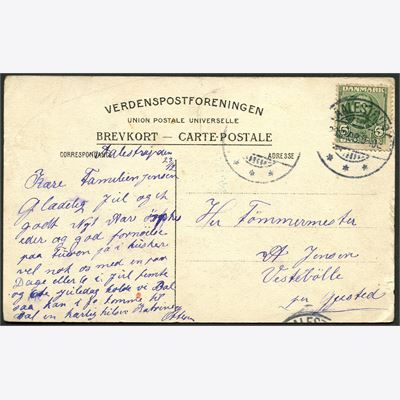 VERDENSPOSTFORENINGEN
UNION POSTALE UNIVERSELLE
BREVKORT — CARTE-POSTALE
CORRESPONDANCE
ADRESSE
DANMARK
5 5
Kære Familien Jensen
Glædelig Jul og et
godt Nyt Aar
eder og god fornöielse
paa Turen ja i husker
vel nok os med en par
Dage eller to i Jul
og Juledag holde vi Bal
saa kan i jo komme til
Bal en kærlig hilsen
Her Tömmermester
A Jensen
Vestebölle
pr Gjested
ALEST